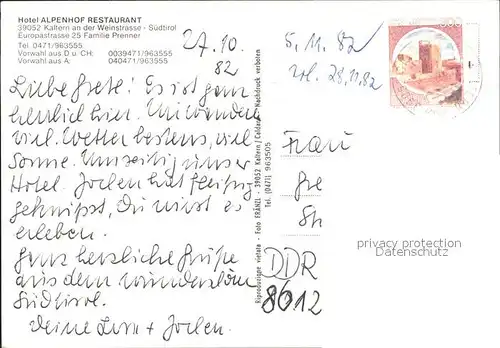 Hotel ALPENHOF RESTAURANT
39052 Kaltern an der Weinstrasse - Südtirol
Europastrasse 25 Familie Prenner
Tel. 0471/963555
Vorwahl aus D u CH: 0039471/963555
Vorwahl aus A: 040471/963555
27.10.
82
Liebe Grete! Es ist ganz
herrlich hier. Wir wandern
viel. Wetter bestens, viel
Sonne. Umseitig unser
Hotel. Jochen hat fleißig
geknipst, Du wirst es
erleben.
Ganz herzliche Grüße
aus dem wunderschönen
Südtirol.
Deine + Jochen.
Riproduzione vietata - Foto FRÄNZL - 39052 Kaltern / Caldaro - Nachdruck verboten
Tel. (0471) 963505
5.11.82
28.11.82
Frau
Gre
DDR
8012
privacy protection
oldthing.de